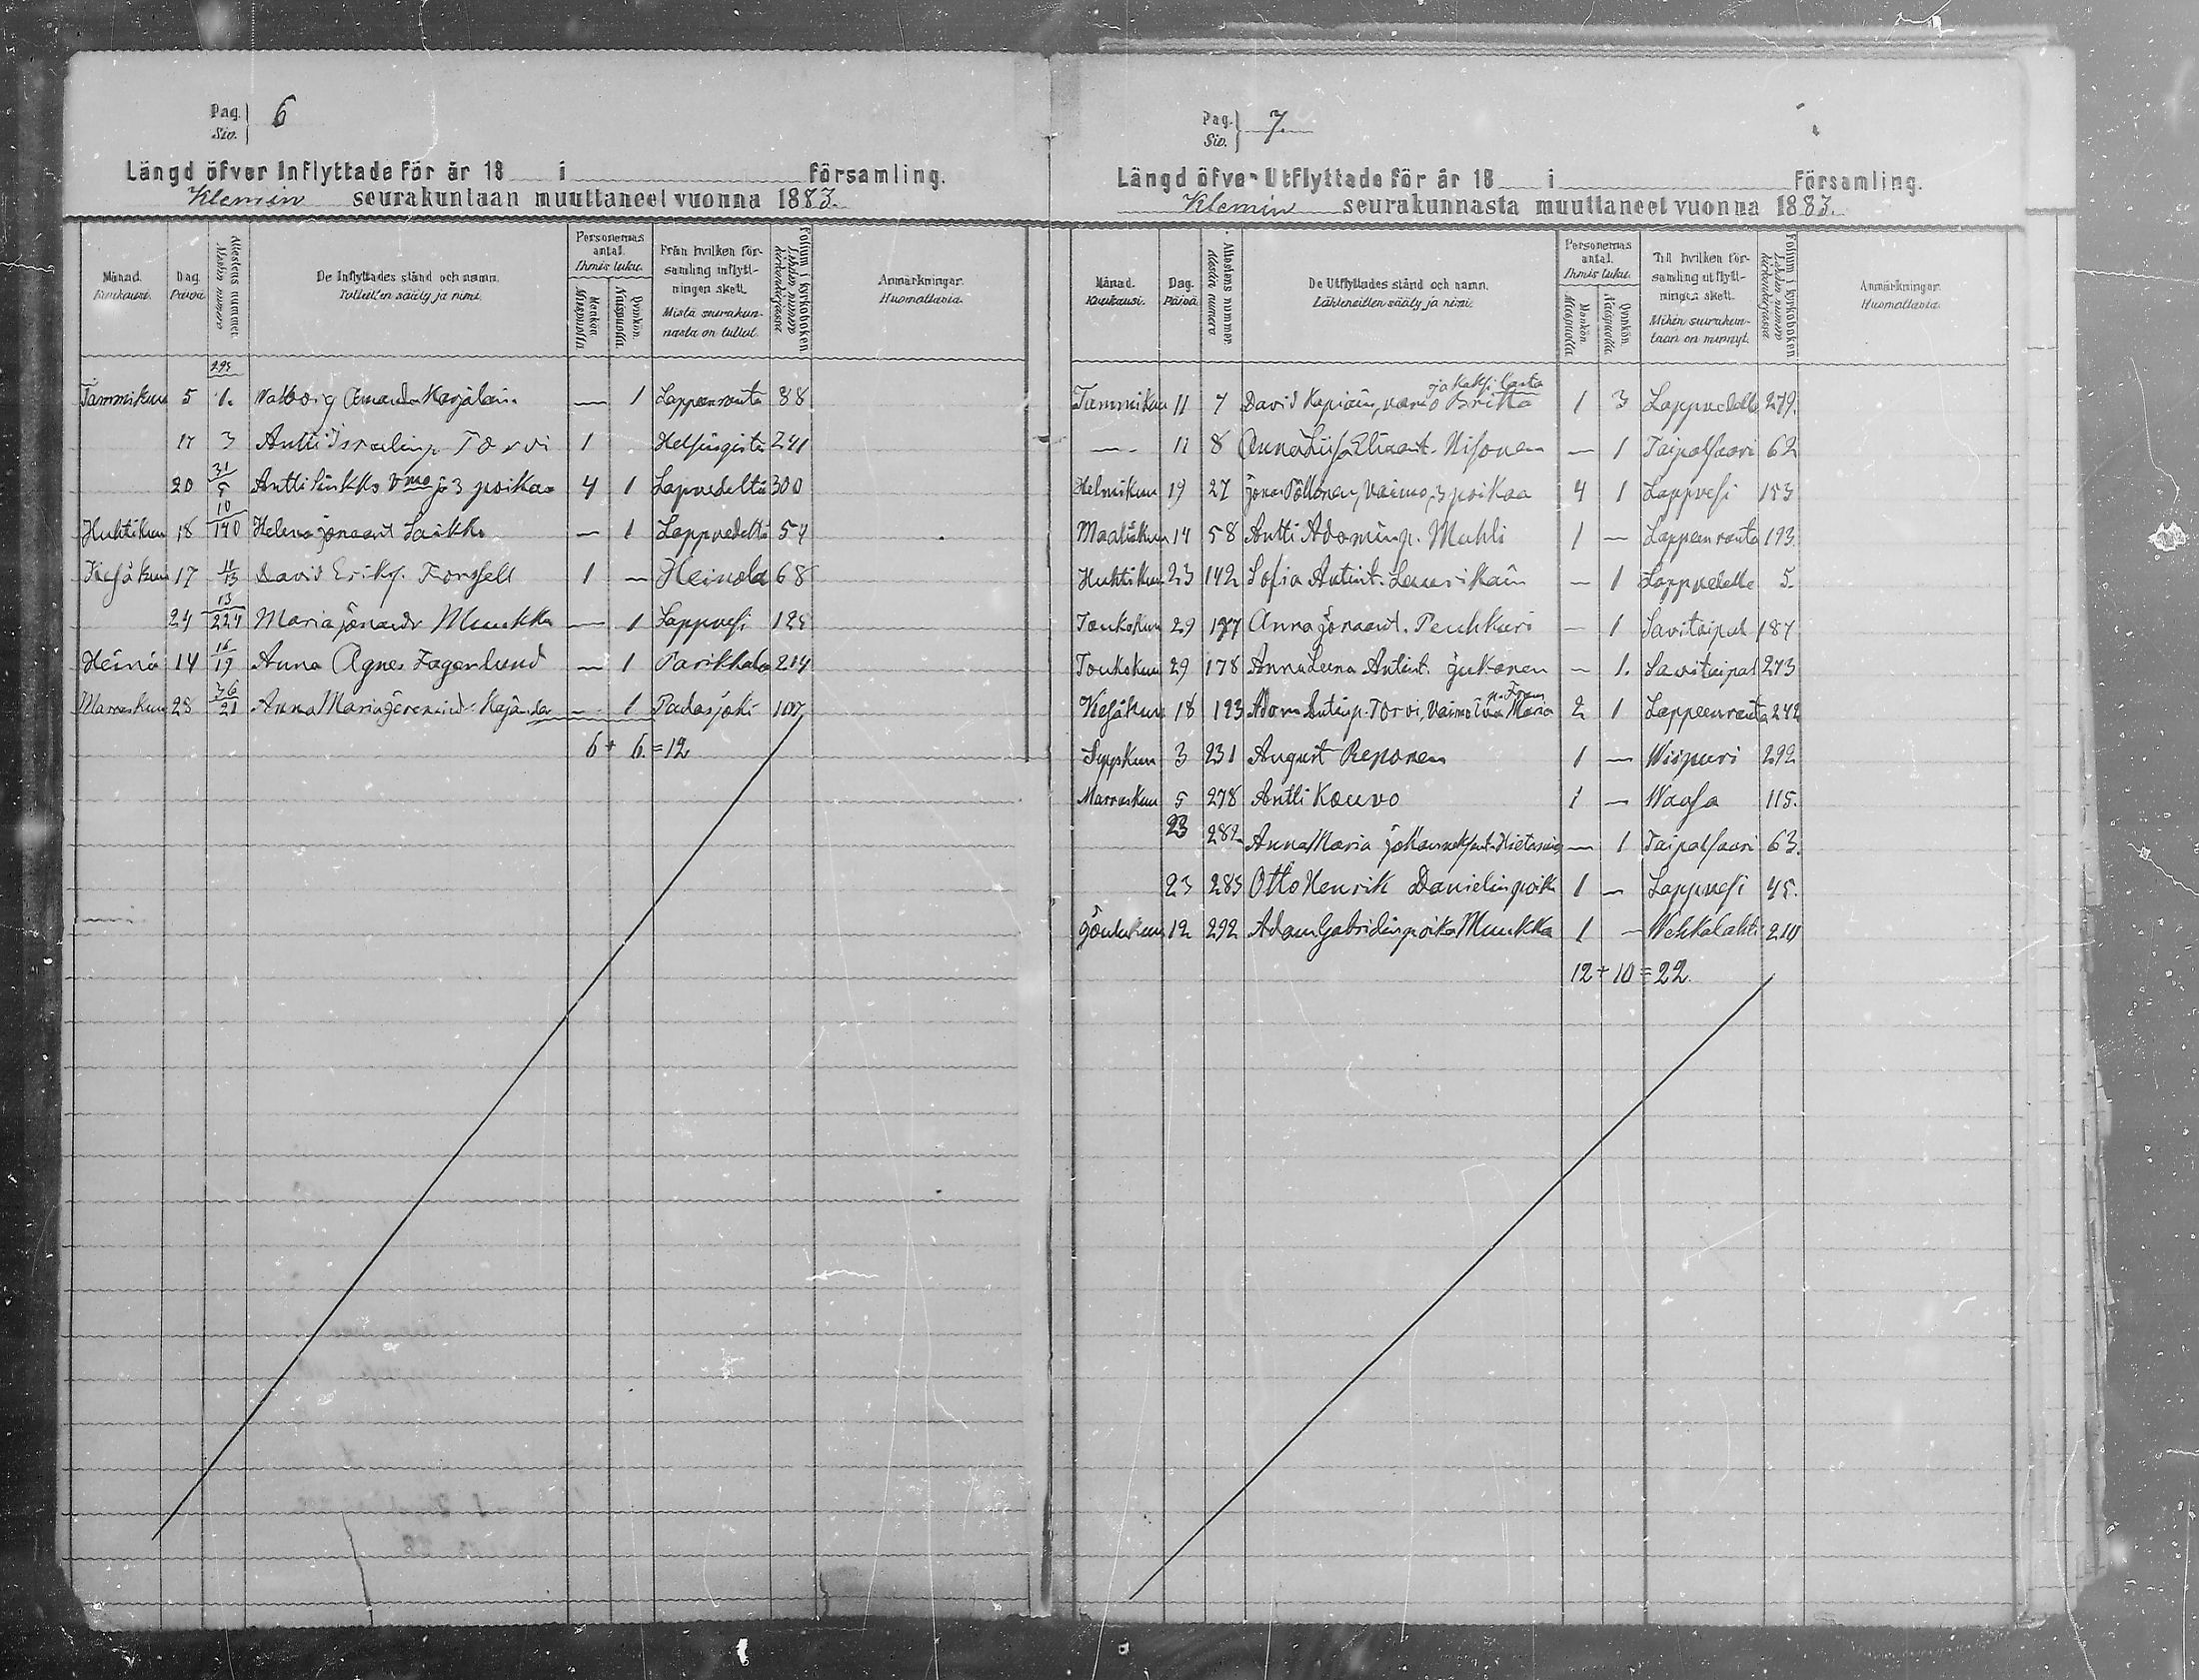 Pag. Siv. } 6
Längd öfver Inflyttade för år 18 i församling.
Klemin seurakuntaan muuttaneet vuonna 1883.
Månad. Kuukausi. Dag. Päivä. Attestens nummer. Alestin numero De Inflyttades stånd och namn. Tulleitten sääty ja nimi. Personernas antal. Ihmis luku. Mankön. Miespuolia Qvinkön. Naispuolia. Från hvilken församling inflyttningen skett. Mistä seurakunnasta on tullut. Folium i kyrkoboken Lehden numero kirkonkirjassa Anmärkningar. Huomattavia.
295
Tammikuu 5 1. Walborg Amanda Karjalain. — 1 Lappeenranta 88
17 3 Antti Israelinp. Torvi 1 Helsingistä 241
20 31/5 Antti Linkko Vmo ja 3 poikaa 4 1 Lapvedeltä 300
Huhtikuu 18 10/140 Helena Jonaant Saikko — 1 Lappvedeltä 54
Kesäkuu 17 11/13 David Eriks. Forssell 1 — Heinola 68
24 13/224 Maria Jonaadr Muukka — 1 Lappvesi 125
Heinä 14 16/19 Anna Agnes Fagerlund — 1 Parikkala 214
Marraskuu 28 36/21 Anna Maria Kajander — 1 Padasjoki 107
6 + 6. = 12
Pag. Siv. } 7
Längd öfver Utflyttade för år 18 i församling.
Klemin seurakunnasta muuttaneet vuonna 1883.
Månad. Kuukausi. Dag. Päivä. Attestens nummer. Alestin numero De Utflyttades stånd och namn. Lähteneitten sääty ja nimi. Personernas antal. Ihmis luku. Mankön. Miespuolia Qvinkön. Naispuolia Till hvilken församling utflyttningen skett. Mihin seurakuntaan on mennyt. Folium i kyrkoboken Lehden numero kirkonkirjassa Anmärkningar. Huomattavia.
ja kaksi lasta
Tammikuu 11 7 David Kapiain, vaimo Britta 1 3 Lappvedelle 279.
— 11 8 Anna Liisa Eliaant. Nisonen — 1 Taipalsaari 62
Helmikuu 19 27 Jona Pöllönen, Vaimo, 3 poikaa 4 1 Lappvesi 153
Maaliskuu 14 58 Antti Adaminp. Muhli 1 — Lappeenranta 193.
Huhtikuu 23 142 Sofia Antint. Laurikain — 1 Lappvedelle 5.
Toukokuu 29 177 Anna Jonaant. Peuhkuri — 1 Savitaipal 187
Toukokuu 29 178 Anna Leena Antint. Jukonen — 1. Savitaipal 273
Kesäkuu 18 193 Adam Antinp. Torvi, Vaimo Eva Maria 2 1 Lappeenranta 242
Syyskuu 3 231 August Reponen 1 — Wiipuri 292
Marraskuu 5 278 Antti Kouvo 1 — Waasa 115.
23 282 Anna Maria Hietanin — 1 Taipalsaari 63.
23 283 Otto Henrik Danielin poika 1 — Lappvesi 45.
Joulukuu 12 292 Adam Gabrielinpoika Muukka 1 — Wehkalahti 210
12 + 10 = 22